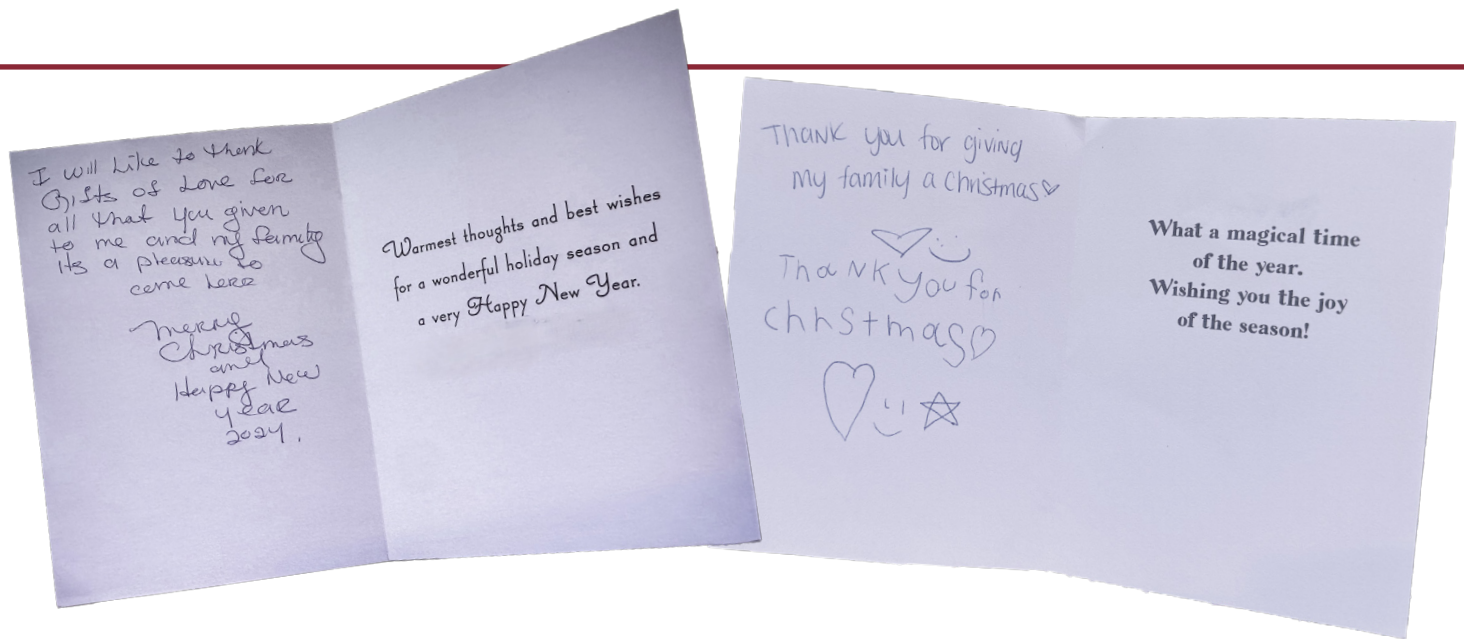 I will Like to thenk
Gifts of Love for
all that you given
to me and my family
its a pleasure to
come here
merry
Christmas
and
Happy New
year
2024.
Warmest thoughts and best wishes
for a wonderful holiday season and
a very Happy New Year.
Thank you for giving
my family a Christmas♡
Thank you for
chhstmas♡
What a magical time
of the year.
Wishing you the joy
of the season!